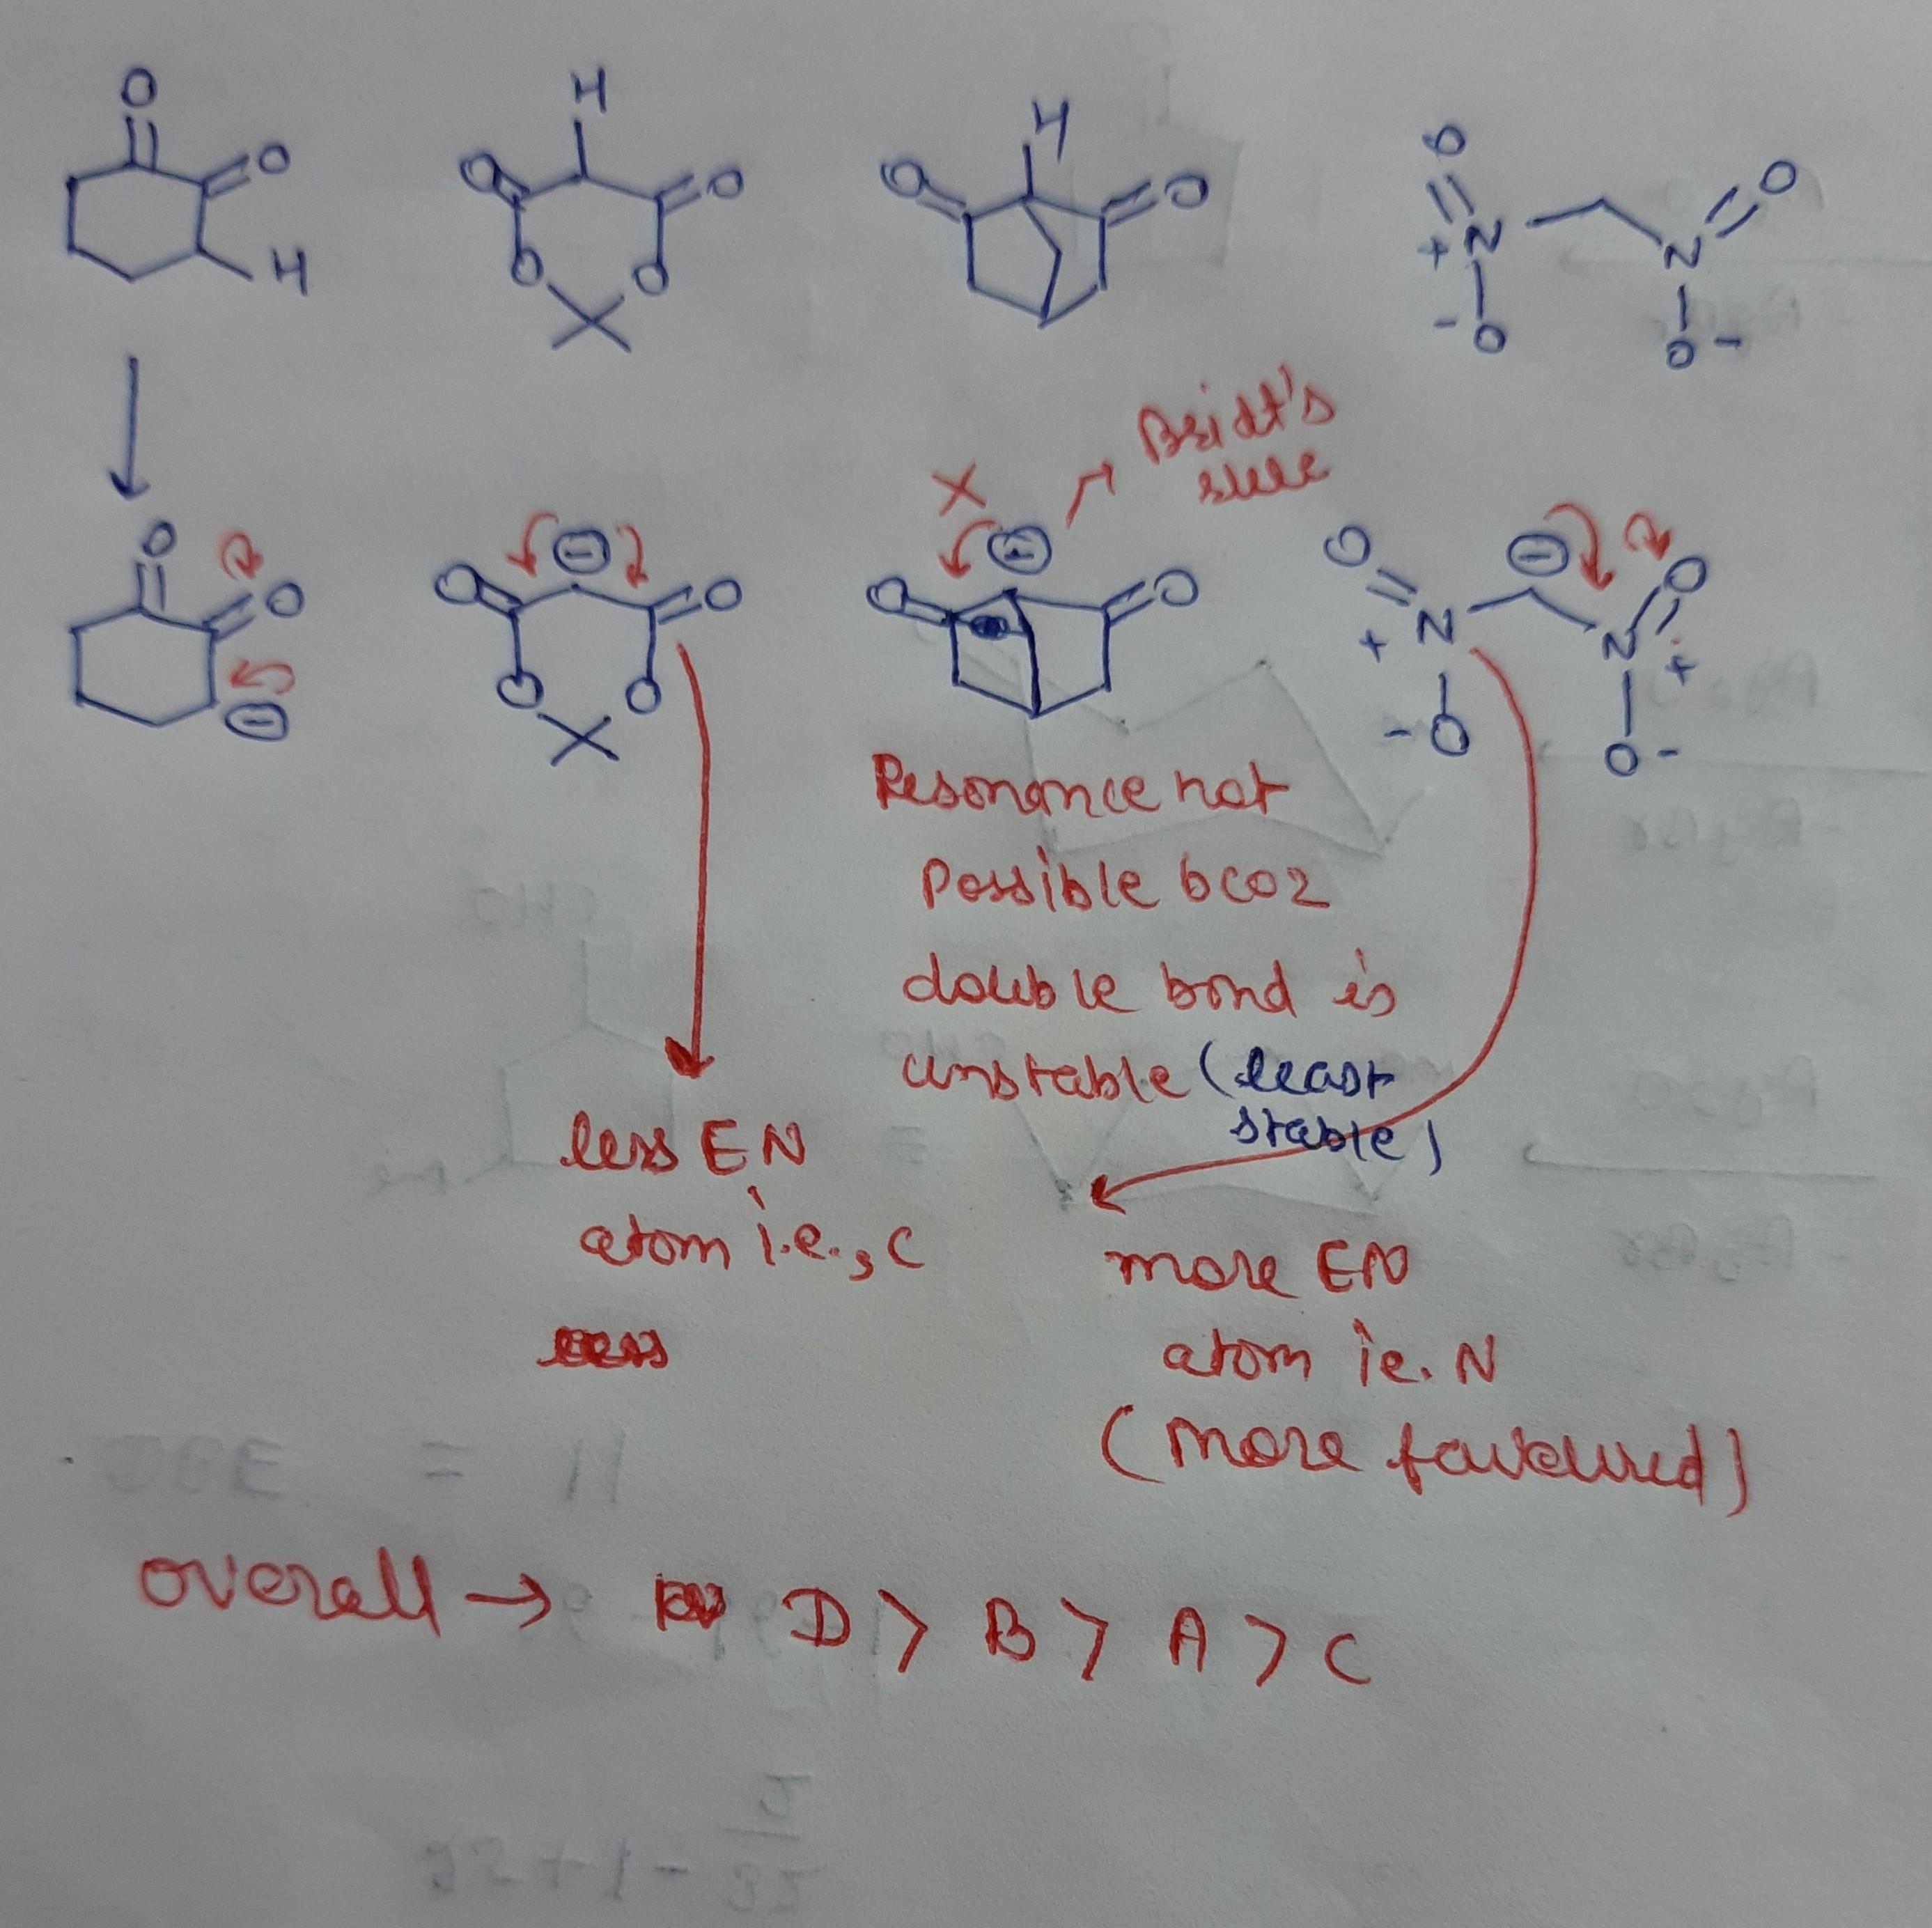 O
O
H
H
O
O
O
O
H
O
O
O
N
+
-
O
O
N
O -
X
Bridt's
rule
O
O
-
O
O
-
O
O
-
O
O
O
N
+
- O
-
O
N
+
O -
Resonance not
possible bcoz
double bond is
unstable (least
stable)
less EN
atom i.e., C
more EN
atom ie. N
(more favoured)
overall → D > B > A > C